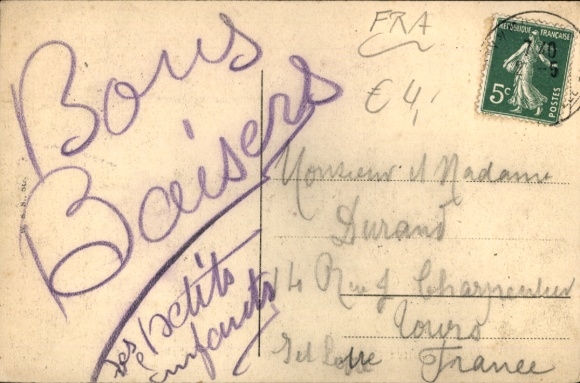 Bons
Baisers
des petits
enfants
FRA
€ 4,-
RÉPUBLIQUE FRANÇAISE
5c
POSTES
Monsieur et Madame
Durand
14 Rue J Charpentier
Tours
France